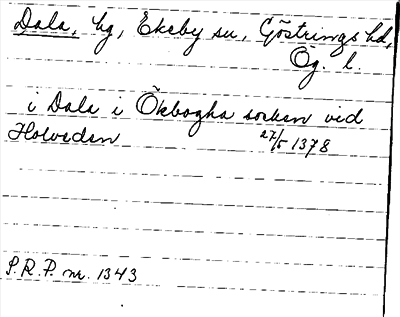 Dala, hg, Ekeby sn, Göstrings hd,
Ög. l.
i Dale i Økbogha socken vid
Holveden 27/5 1378
S.R.P. nr. 1343